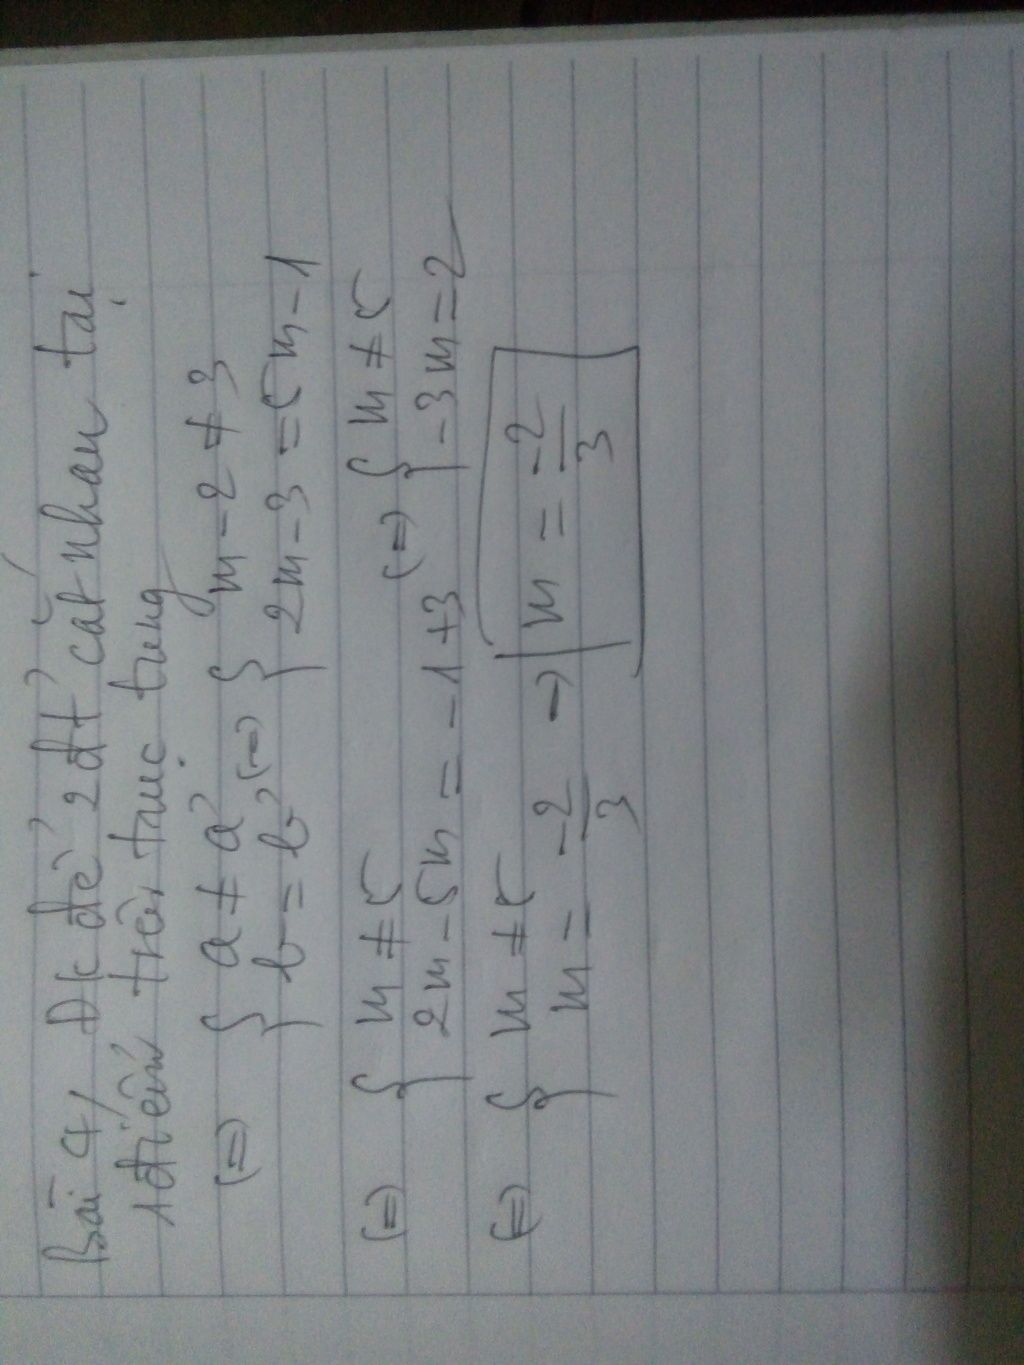 Bài 4/ Đk để 2 đt cắt nhau tại
1 điểm trên trục tung
(=) { a ≠ a' (=) { m - 2 ≠ 3
b = b' 2m - 3 = 5m - 1
(=) { m ≠ 5 (=) { m ≠ 5
2m - 5m = -1 + 3 -3m = 2
(=) { m ≠ 5
m = -2/3 → m = -2/3